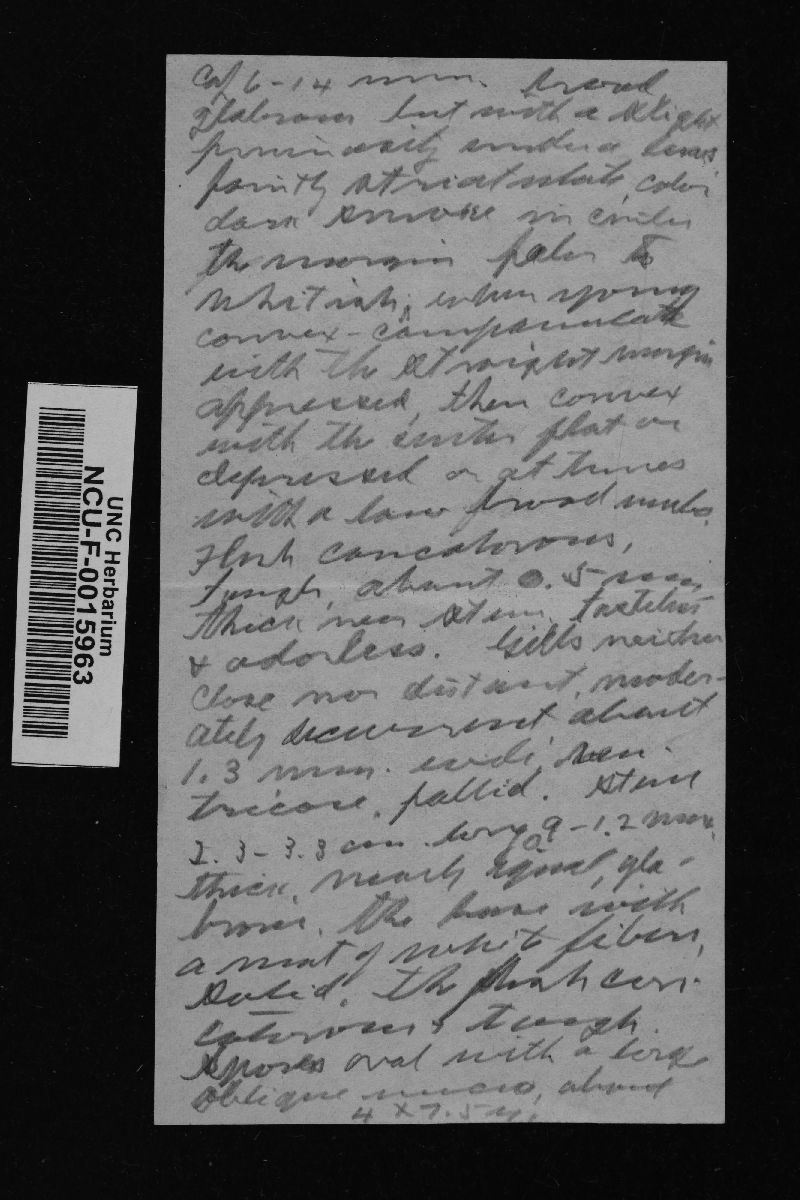 Cap 6-14 mm. broad,
glabrous but with a slight
pruinosity under a lens,
faintly striatulate, color
dark smoke in center
the margin paler to
whitish; when young
convex-campanulate
with the straight margin
appressed, then convex
with the center flat or
depressed or at times
with a low broad umbo.
Flesh concolorous,
tough, about 0.5 mm.
thick near stem, tasteless
& odorless. Gills neither
close nor distant, moder-
ately decurrent, about
1.3 mm. wide,
tricose, pallid. Stem
2.3-3.3 cm. long, 0.9-1.2 mm.
thick, nearly equal, gla-
brous, the base with
a mat of white fibers,
solid, the flesh con-
colorous & tough.
Spores oval with a large
oblique mucro, about
4 x 7.5 µ.
UNC Herbarium
NCU-F-0015963